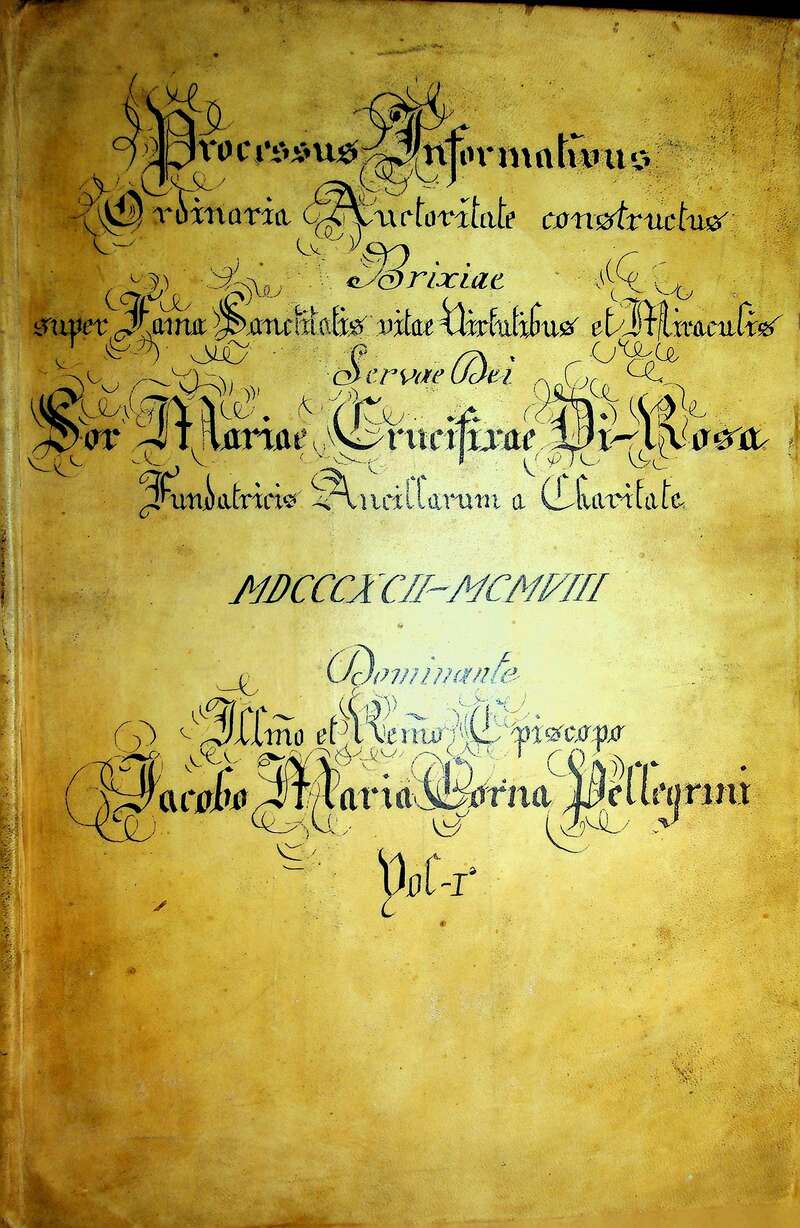 Processus Informativus
Ordinaria Auctoritate constructus
Brixiae
super Fama Sanctitatis vitae Virtutibus et Miraculis
Servae Dei
Sor Mariae Crucifixae Di-Rosa
Fundatricis Ancillarum a Charitate
MDCCCXCII-MCMVIII
Dominante
Illm̃o et Rem̃o Episcopo
Jacobo Maria Corna Pellegrini
Vol-I°